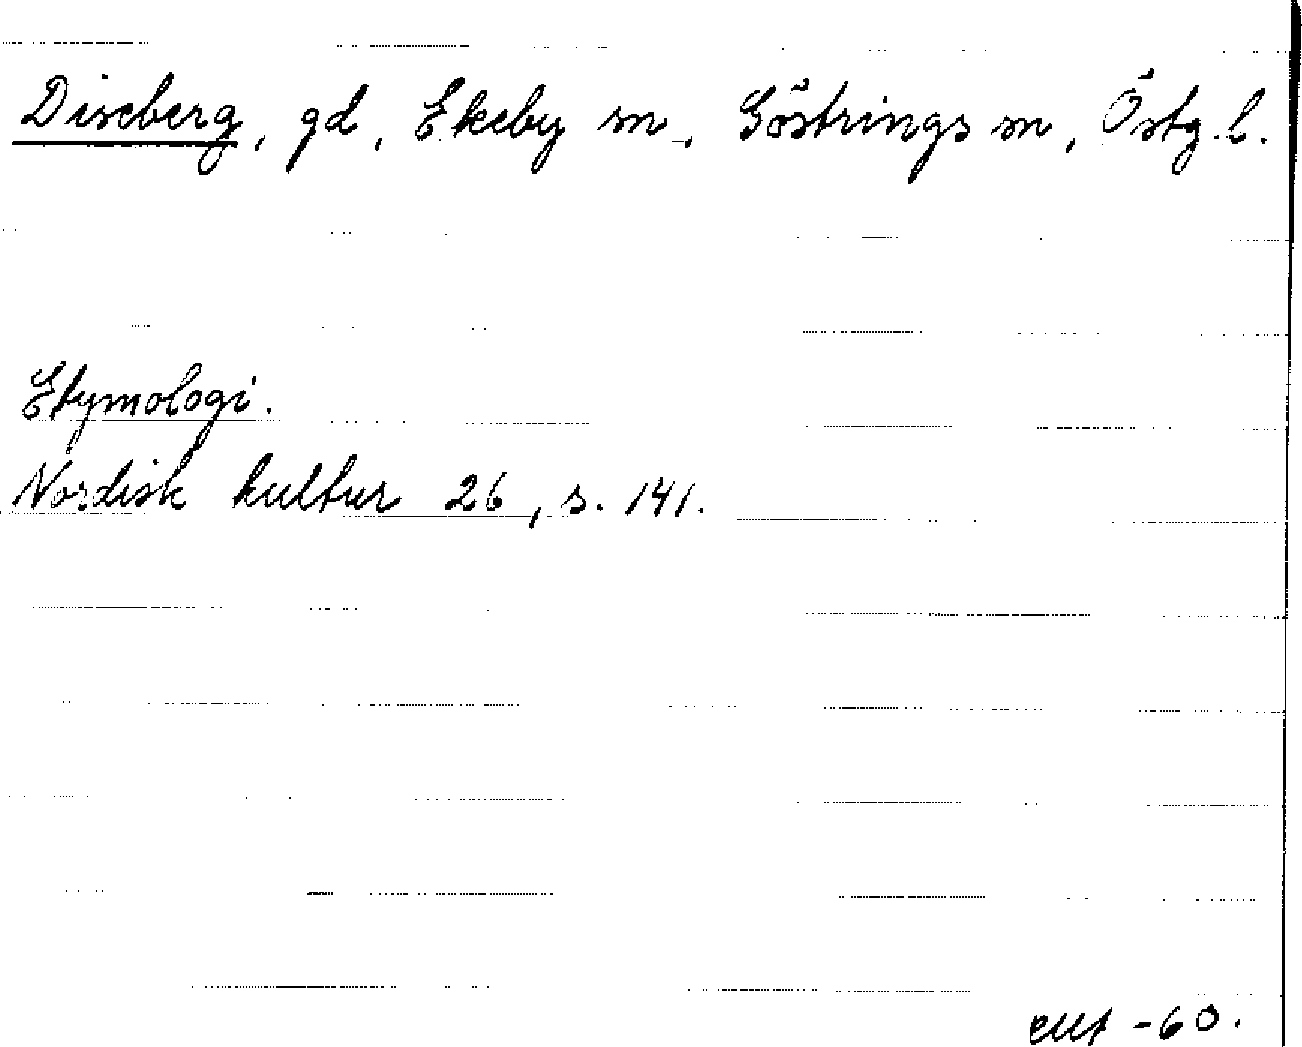 Diseberg, gd, Ekeby sn, Göstrings sn, Östg.l.
Etymologi.
Nordisk kultur 26, s. 141.
-60.